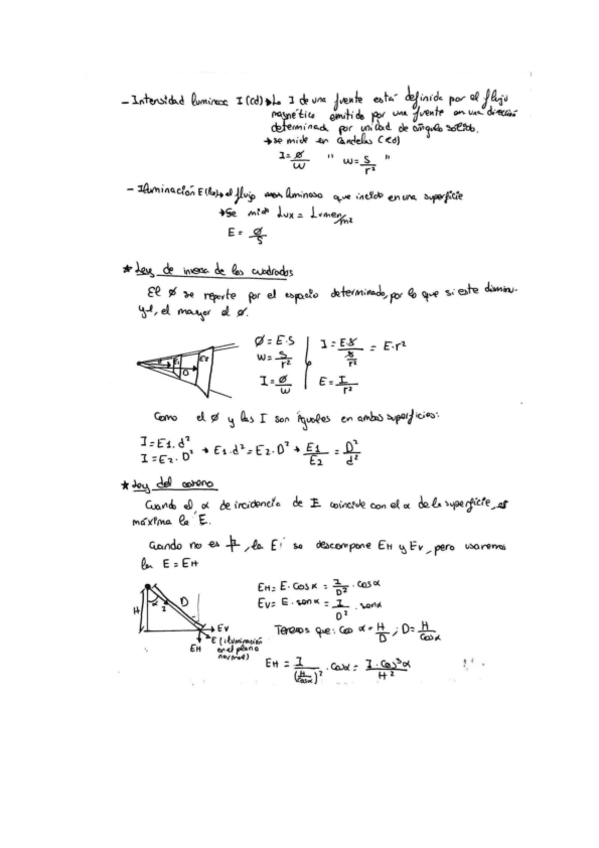 - Intensidad luminosa I (cd) → La I de una fuente está definida por el flujo
magnético emitido por una fuente en una dirección
determinada por unidad de ángulo sólido.
→ se mide en candelas (cd)
I = Ø/W " W = S/r² "
- Iluminación E (lx) → el flujo luminoso que incide en una superficie
→ Se mide Lux = Lumen/m²
E = Ø/S
* Ley de inversa de los cuadrados
El Ø se reparte por el espacio determinado, por lo que si este disminu-
ye, el mayor el Ø.
Ø = E·S
W = S/r²
I = Ø/W
I = E·S / (S/r²) = E·r²
E = I/r²
E1 E2
d
D
Como el Ø y las I son iguales en ambas superficies:
I = E1·d²
I = E2·D² → E1·d² = E2·D² → E1/E2 = D²/d²
* Ley del coseno
Cuando el α de incidencia de E coincide con el α de la superficie, es
máxima la E.
Cuando no es, la E se descompone EH y EV, pero usaremos
la E = EH
EH = E·cosα = I/D² · cosα
EV = E·senα = I/D² · senα
Tenemos que: cos α = H/D ; D = H/cosα
EH = I/(H/cosα)² · cosα = I·cos³α/H²
H
α
I
D
EV
E (iluminación
en el plano
normal)
EH